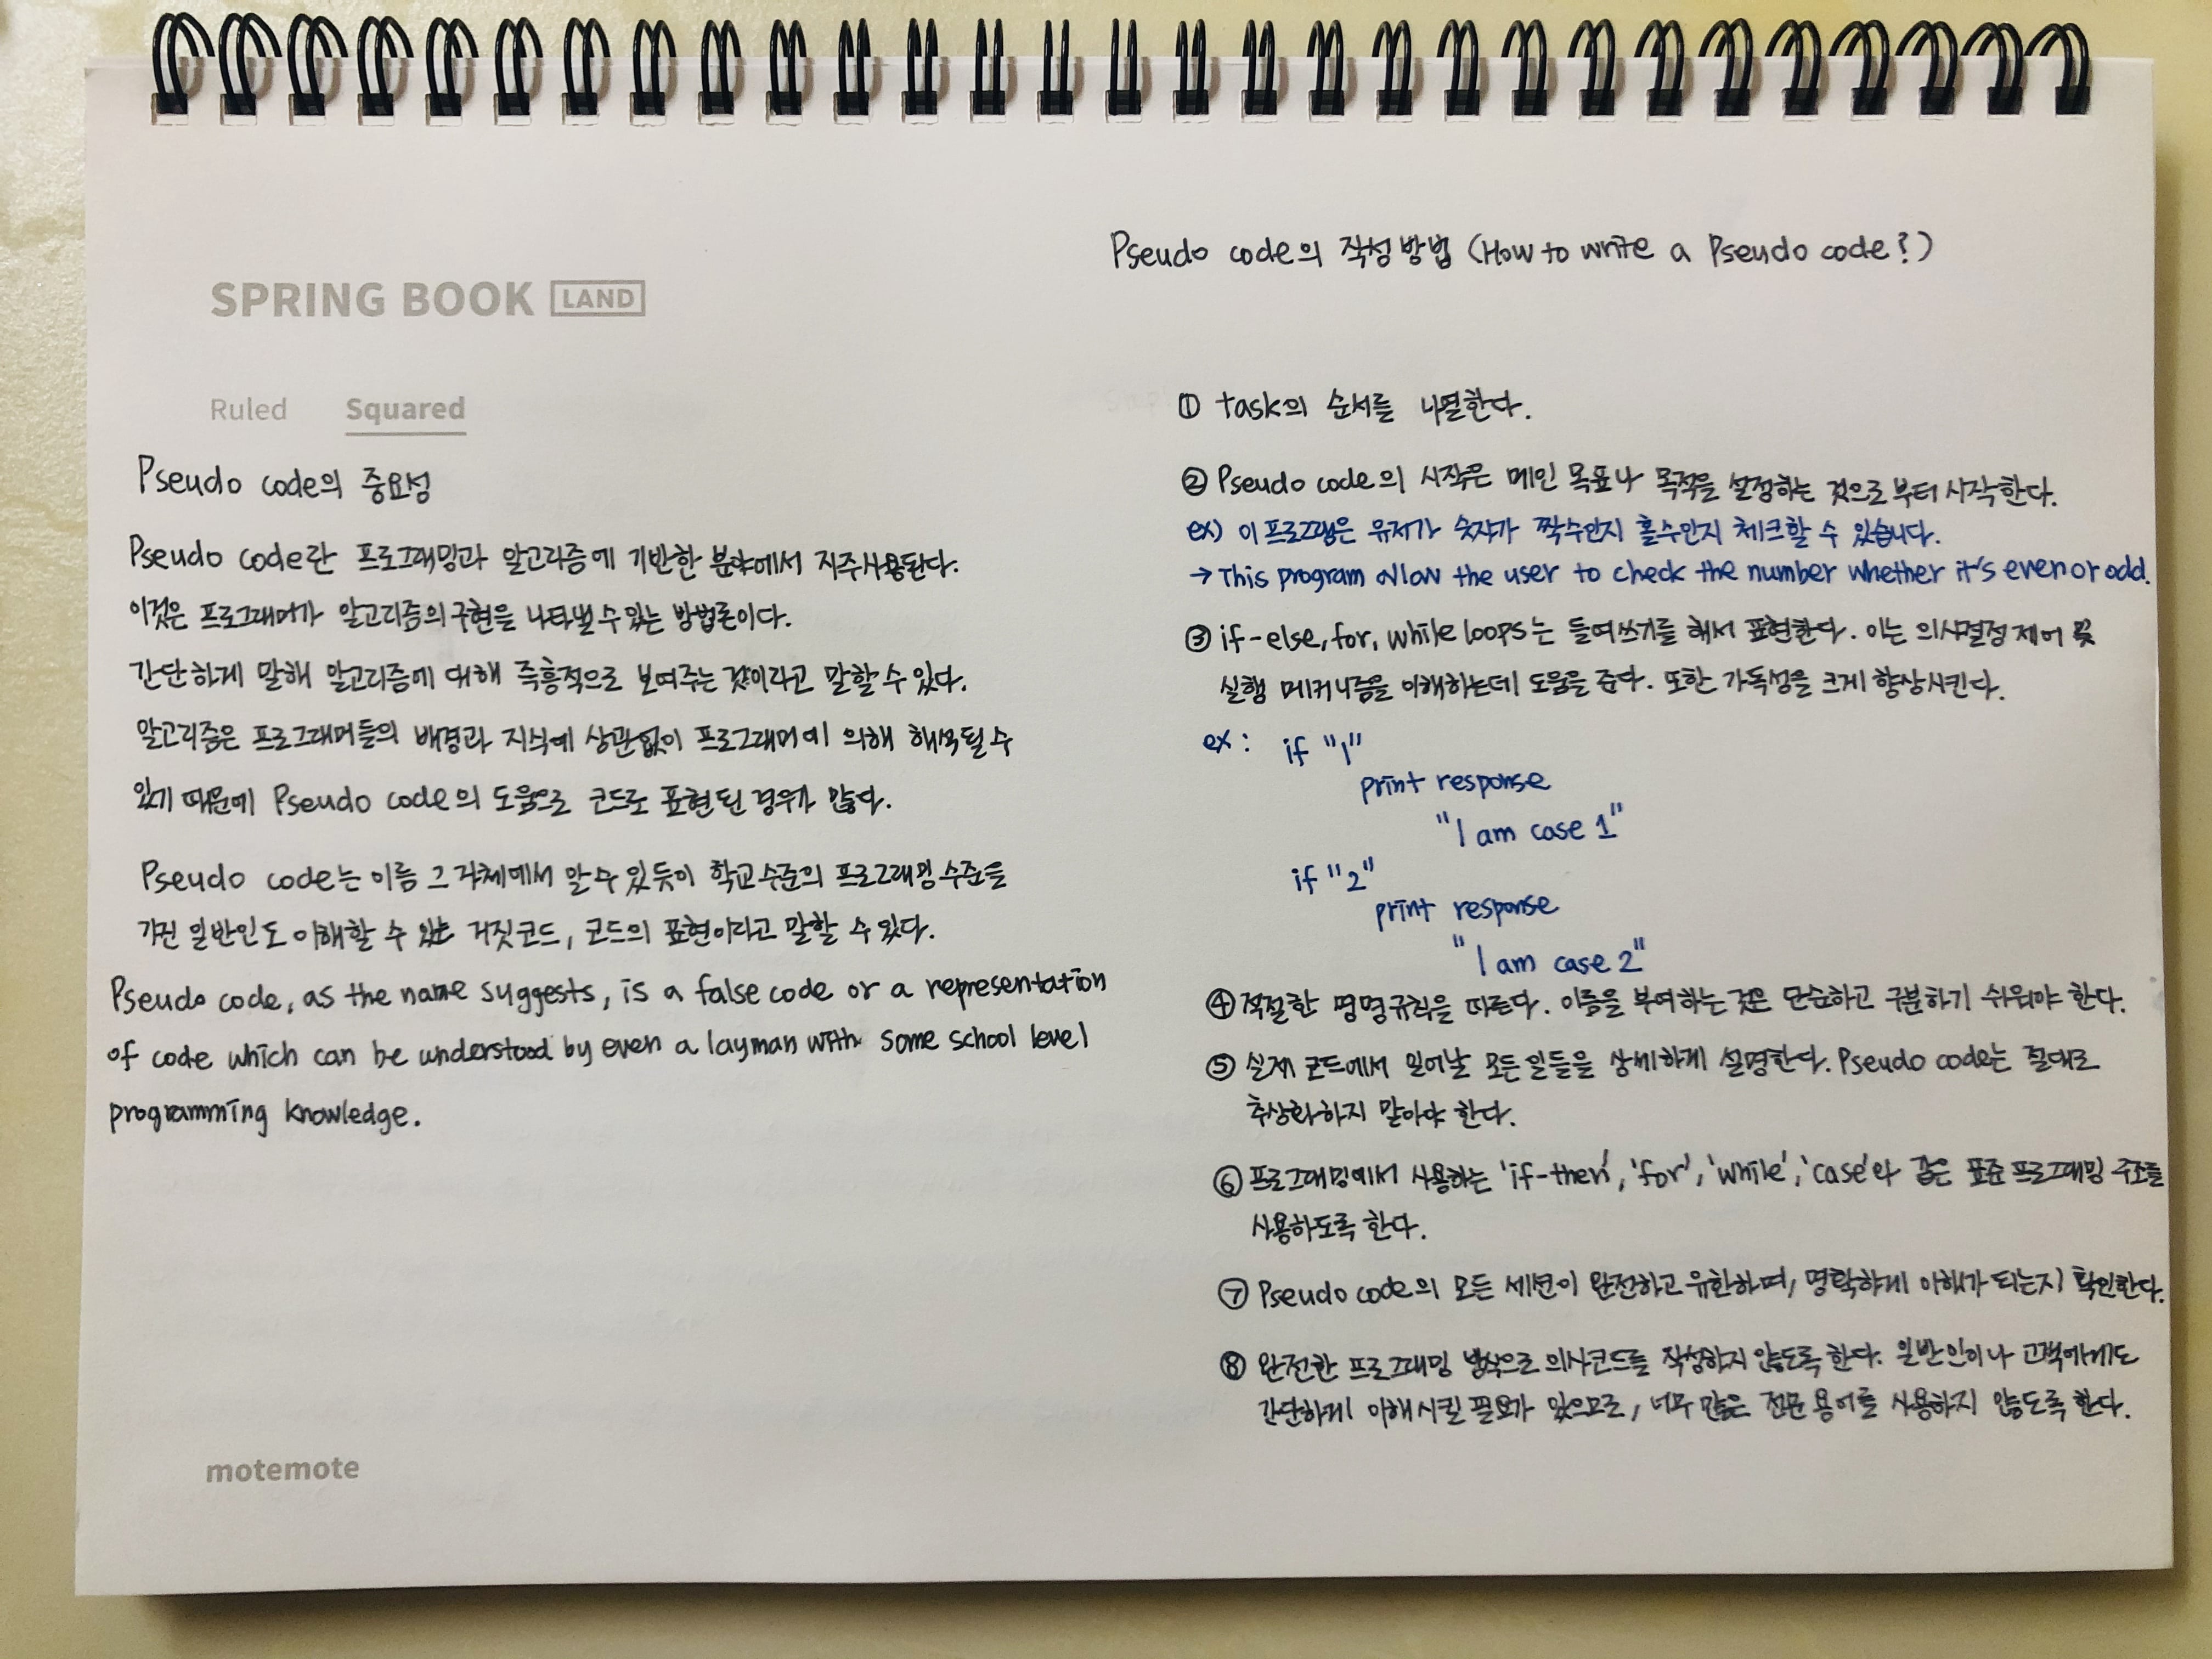 SPRING BOOK LAND
Ruled Squared
Pseudo code의 중요성
Pseudo code란 프로그래밍과 알고리즘에 기반한 분야에서 자주사용된다.
이것은 프로그래머가 알고리즘의 구현을 나타낼 수 있는 방법론이다.
간단하게 말해 알고리즘에 대해 즉흥적으로 보여주는 것이라고 말할 수 있다.
알고리즘은 프로그래머들의 배경과 지식에 상관없이 프로그래머에 의해 해석될 수
있기 때문에 Pseudo code의 도움으로 코드로 표현된 경우가 많다.
Pseudo code는 이름 그 자체에서 알 수 있듯이 학교 수준의 프로그래밍 수준을
가진 일반인도 이해할 수 있는 거짓코드, 코드의 표현이라고 말할 수 있다.
Pseudo code, as the name suggests, is a false code or a representation
of code which can be understood by even a layman with some school level
programming knowledge.
motemote
Pseudo code의 작성 방법 (How to write a Pseudo code?)
① task의 순서를 나열한다.
② Pseudo code의 시작은 메인 목표나 목적을 설정하는 것으로 부터 시작한다.
ex) 이 프로그램은 유저가 숫자가 짝수인지 홀수인지 체크할 수 있습니다.
→ This program allow the user to check the number whether it's even or odd.
③ if-else, for, while loops는 들여쓰기를 해서 표현한다. 이는 의사결정 제어 및
실행 메커니즘을 이해하는데 도움을 준다. 또한 가독성을 크게 향상시킨다.
ex : if "1"
print response
"I am case 1"
if "2"
print response
"I am case 2"
④ 적절한 명명규칙을 따른다. 이름을 부여하는 것은 단순하고 구분하기 쉬워야 한다.
⑤ 실제 코드에서 일어날 모든 일들을 상세하게 설명한다. Pseudo code는 절대로
추상화하지 말아야 한다.
⑥ 프로그래밍에서 사용하는 'if-then', 'for', 'while', 'case'와 같은 표준 프로그래밍 구조를
사용하도록 한다.
⑦ Pseudo code의 모든 세션이 완전하고 유한하며, 명확하게 이해가 되는지 확인한다.
⑧ 완전한 프로그래밍 방식으로 의사코드를 작성하지 않도록 한다. 일반인이나 고객에게도
간단하게 이해시킬 필요가 있으므로, 너무 많은 전문 용어를 사용하지 않도록 한다.